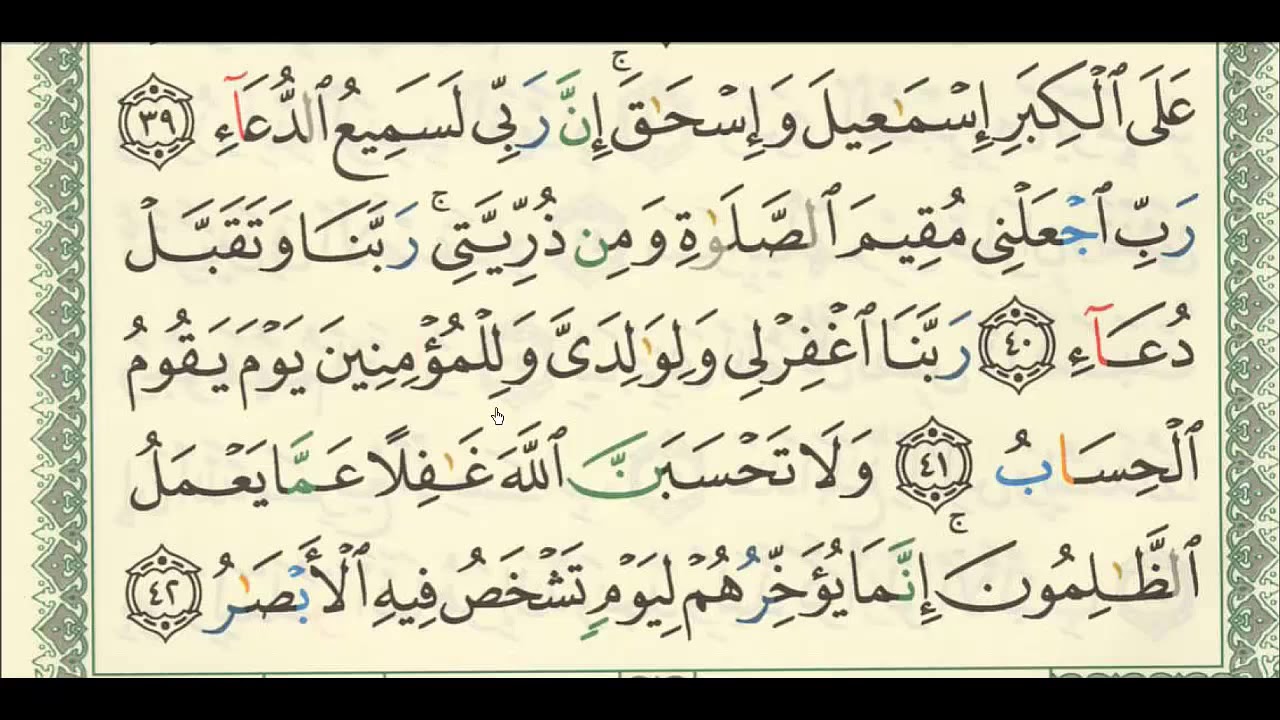 عَلَى ٱلْكِبَرِ إِسْمَـٰعِيلَ وَإِسْحَـٰقَ ۚ إِنَّ رَبِّى لَسَمِيعُ ٱلدُّعَآءِ ٣٩
رَبِّ ٱجْعَلْنِى مُقِيمَ ٱلصَّلَوٰةِ وَمِن ذُرِّيَّتِى ۚ رَبَّنَا وَتَقَبَّلْ
دُعَآءِ ٤٠ رَبَّنَا ٱغْفِرْ لِى وَلِوَٰلِدَىَّ وَلِلْمُؤْمِنِينَ يَوْمَ يَقُومُ
ٱلْحِسَابُ ٤١ وَلَا تَحْسَبَنَّ ٱللَّهَ غَـٰفِلًا عَمَّا يَعْمَلُ
ٱلظَّـٰلِمُونَ ۚ إِنَّمَا يُؤَخِّرُهُمْ لِيَوْمٍ تَشْخَصُ فِيهِ ٱلْأَبْصَـٰرُ ٤٢